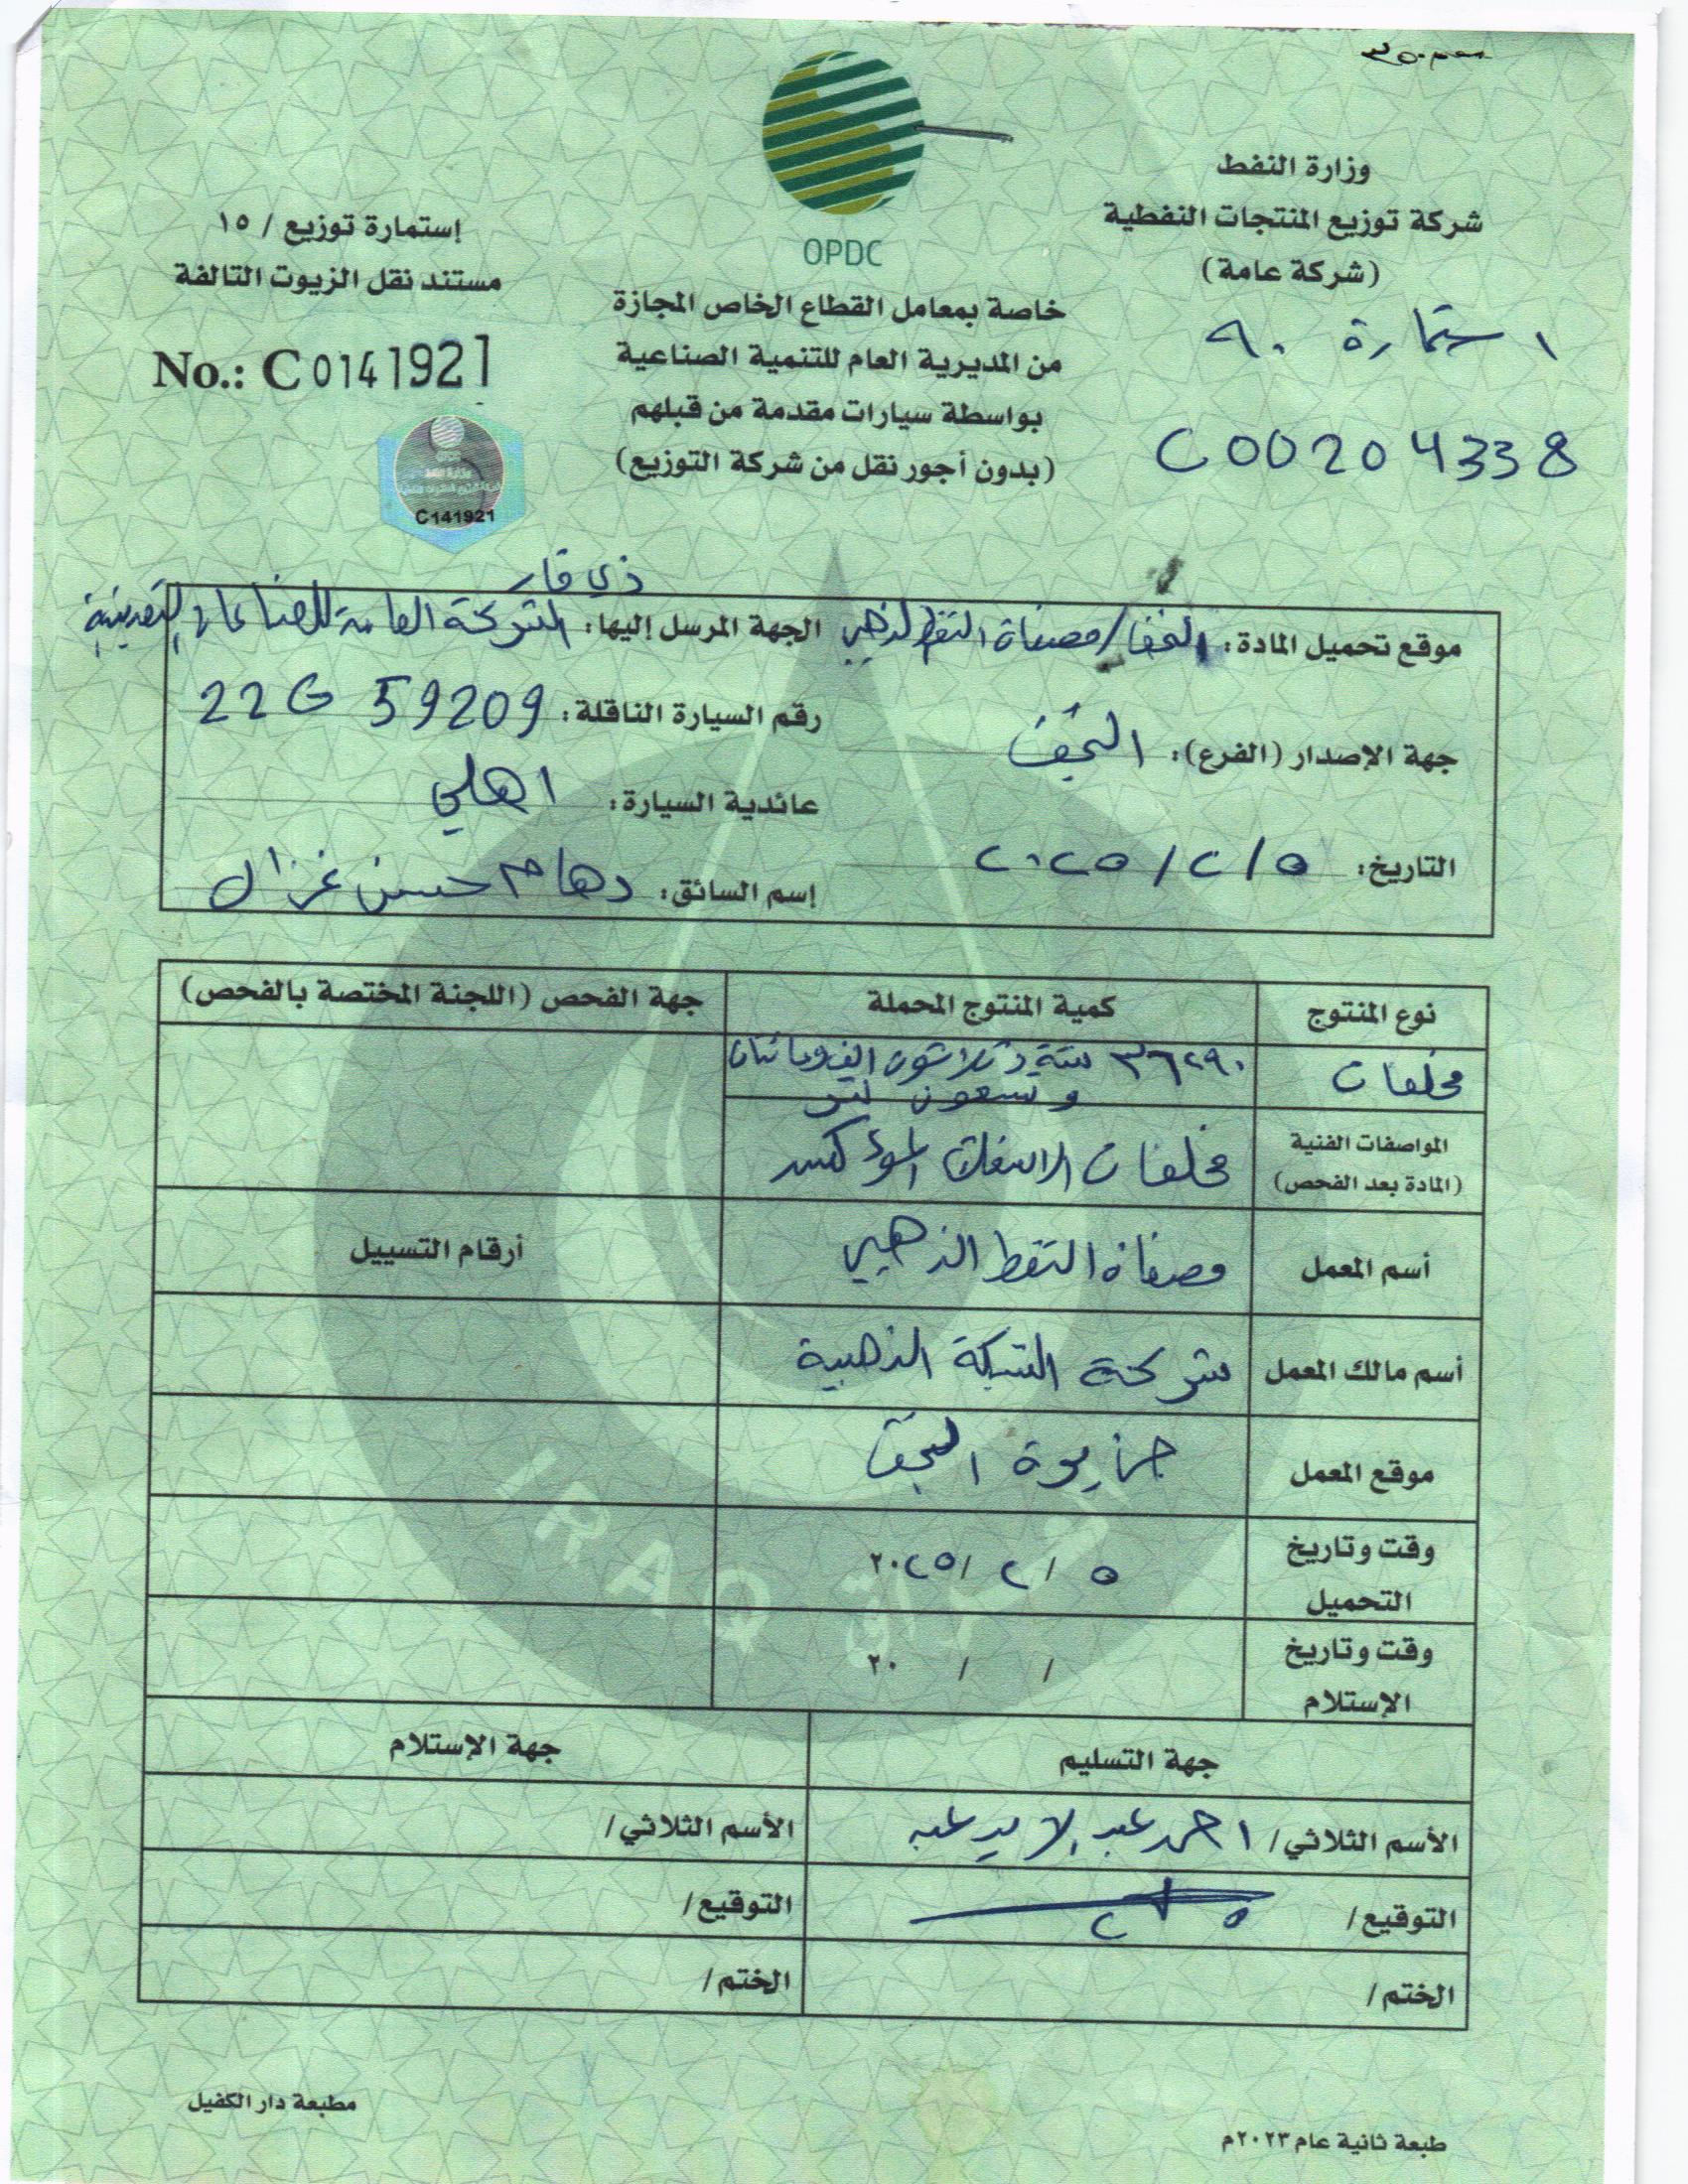 وزارة النفط
شركة توزيع المنتجات النفطية
(شركة عامة)
استمارة ٩٠
C00204338
OPDC
خاصة بمعامل القطاع الخاص المجازة
من المديرية العام للتنمية الصناعية
بواسطة سيارات مقدمة من قبلهم
(بدون أجور نقل من شركة التوزيع)
إستمارة توزيع / ١٥
مستند نقل الزيوت التالفة
No.: C 0141921
C141921
موقع تحميل المادة: النجف / مصفاة النفط الذهبي
الجهة المرسل إليها: الشركة العامة للصناعات التعدينية
ذي قار
جهة الإصدار (الفرع): النجف
رقم السيارة الناقلة: 22G 59209
عائدية السيارة: اهلي
التاريخ: ٥ / ٢ / ٢٠٢٥
إسم السائق: دهام حسن غزال
نوع المنتوج كمية المنتوج المحملة جهة الفحص (اللجنة المختصة بالفحص)
مخلفات ٣٦٢٩٠ ستة وثلاثون الف ومائتان
وتسعون لتر
المواصفات الفنية
(المادة بعد الفحص) مخلفات الاسفلت المؤكسد
أسم المعمل مصفاة النفط الذهبي أرقام التسييل
أسم مالك المعمل شركة الشبكة الذهبية
موقع المعمل جزيرة النجف
وقت وتاريخ
التحميل ٥ / ٢ / ٢٠٢٥
وقت وتاريخ
الإستلام / / ٢٠
جهة التسليم جهة الإستلام
الأسم الثلاثي/ احمد عبد الأسم الثلاثي/
التوقيع/ التوقيع/
٥ ٢
الختم/ الختم/
طبعة ثانية عام ٢٠٢٣م
مطبعة دار الكفيل
IRAQ العراق